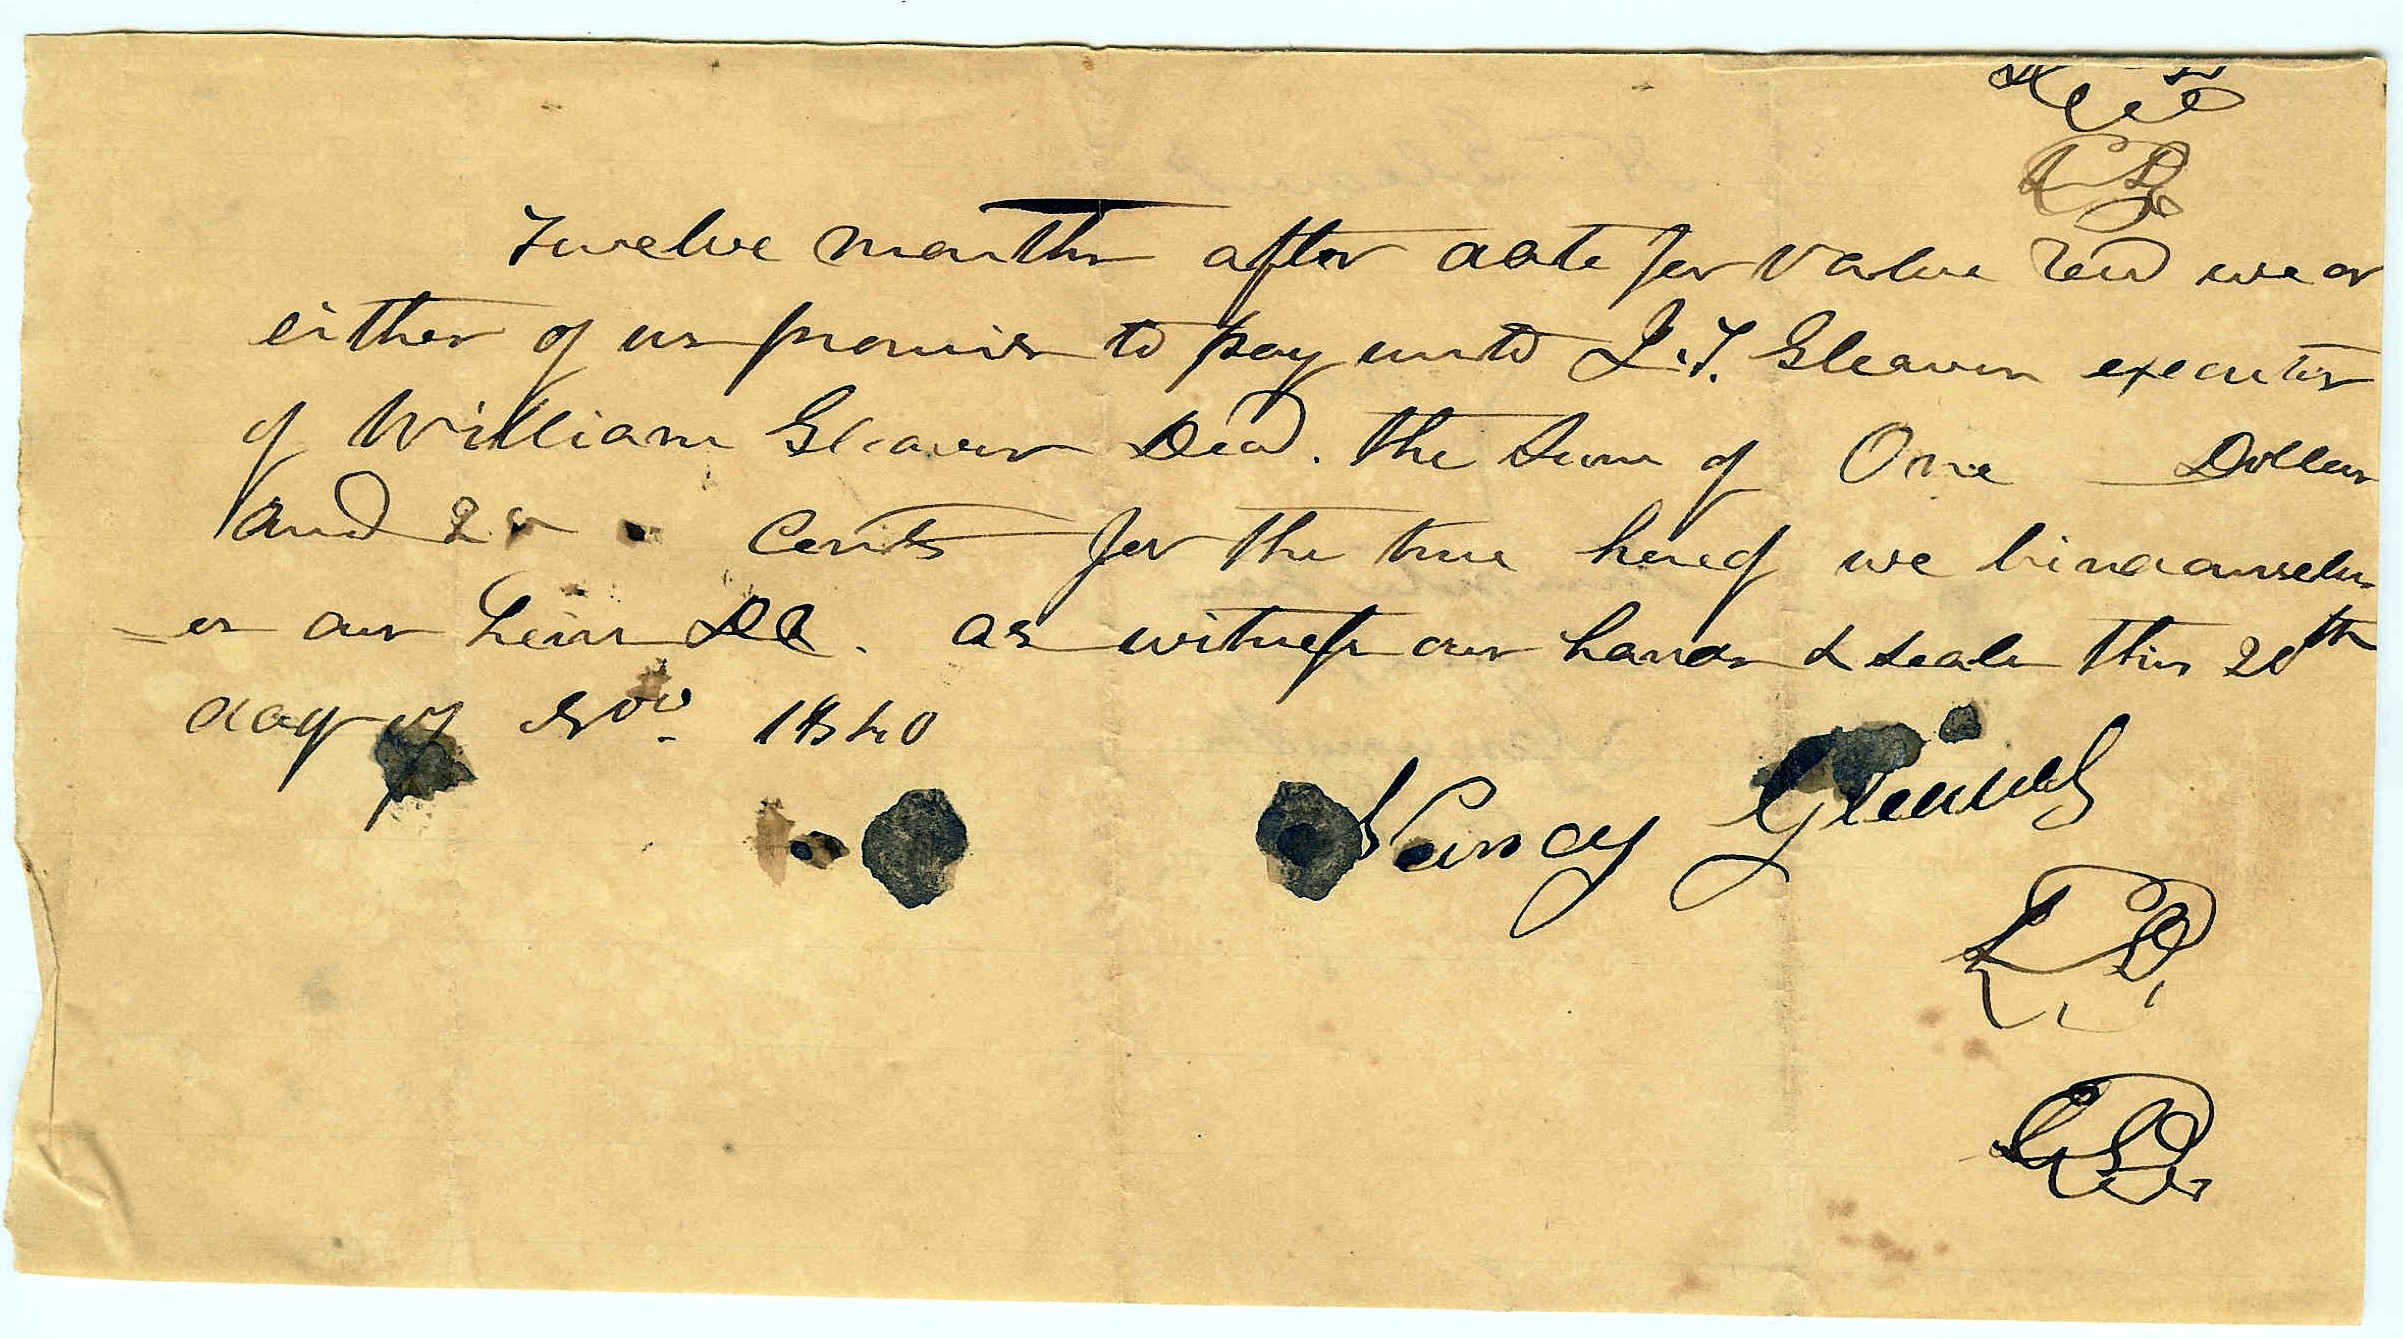 Twelve months after date for value recd we or
either of us promise to pay unto J. T. Gleaves executor
of William Gleaves Decd. the sum of One Dollar
and 25 Cents for the true hereof we bind ourselv
=es our heirs &c. as witness our hands & seals this 20th
day of Nov. 1840
Nancy Gleaves
LS
LS